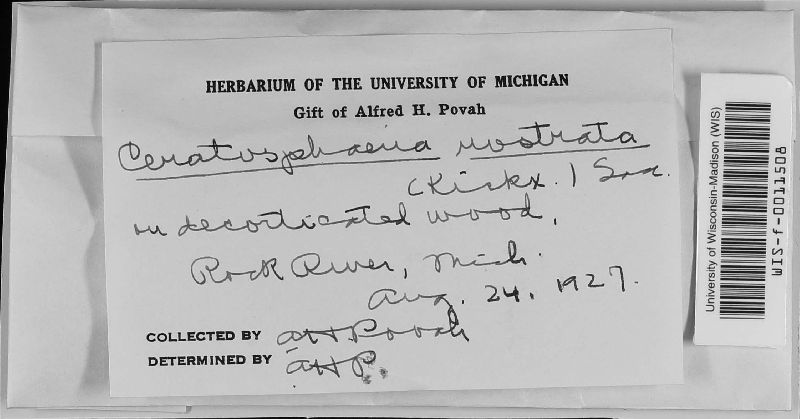 HERBARIUM OF THE UNIVERSITY OF MICHIGAN
Gift of Alfred H. Povah
Ceratosphaeria rostrata
(Kickx.) Sacc.
on decorticated wood,
Rock River, Mich.
Aug. 24, 1927.
COLLECTED BY AH Povah
DETERMINED BY AHP.
University of Wisconsin-Madison (WIS)
WIS-f-0011508